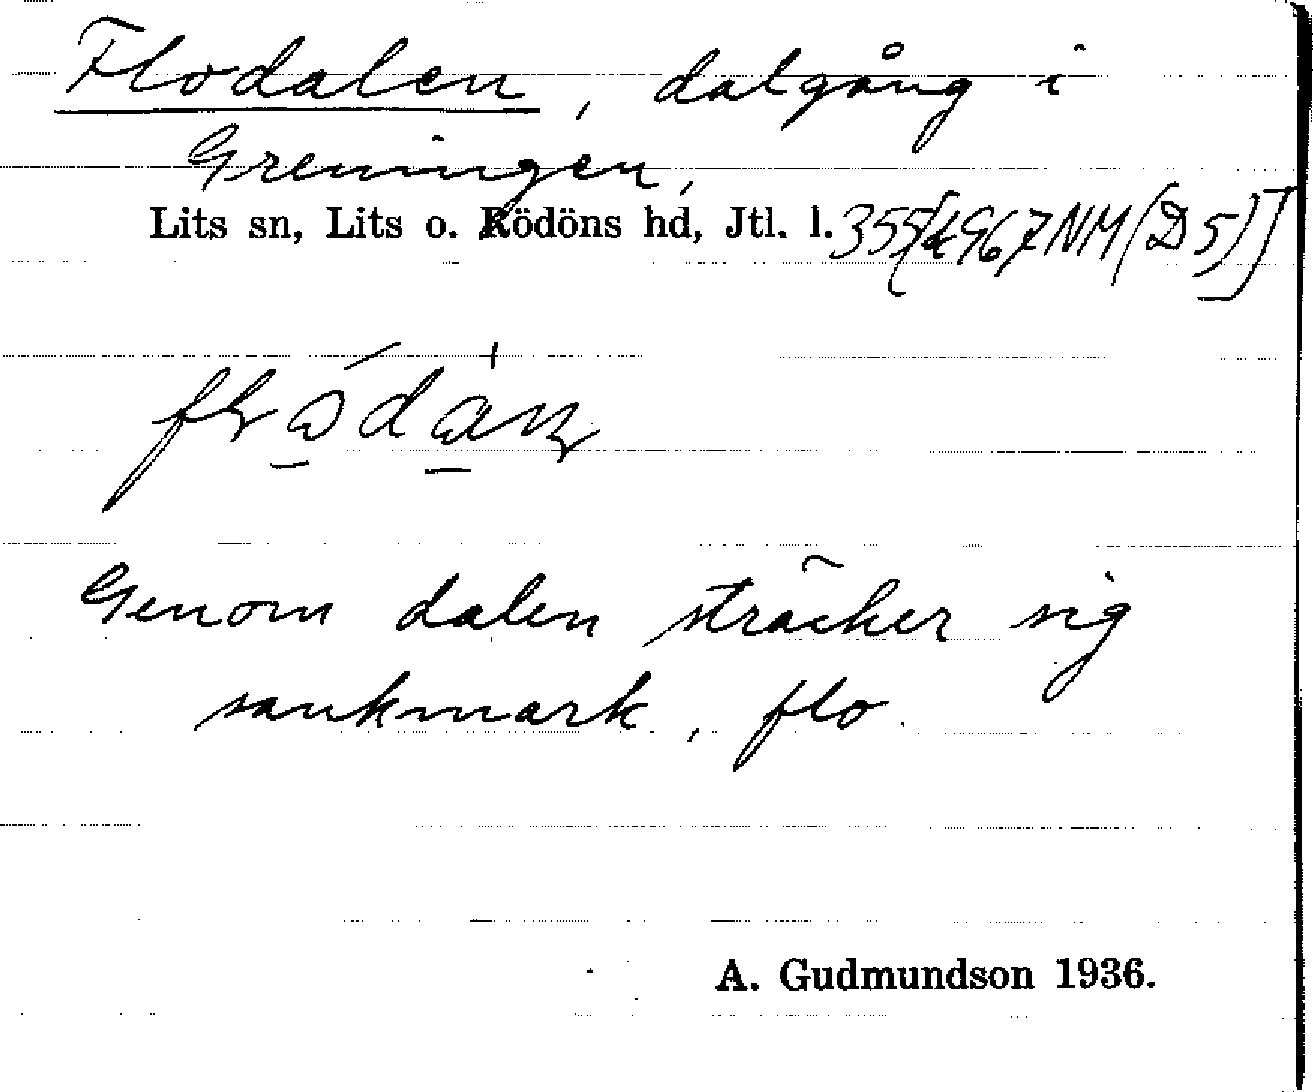 Flodalen, dalgång i
Greningen,
Lits sn, Lits o. Rödöns hd, Jtl. l.
Genom dalen sträcker sig
sankmark, flo.
A. Gudmundson 1936.